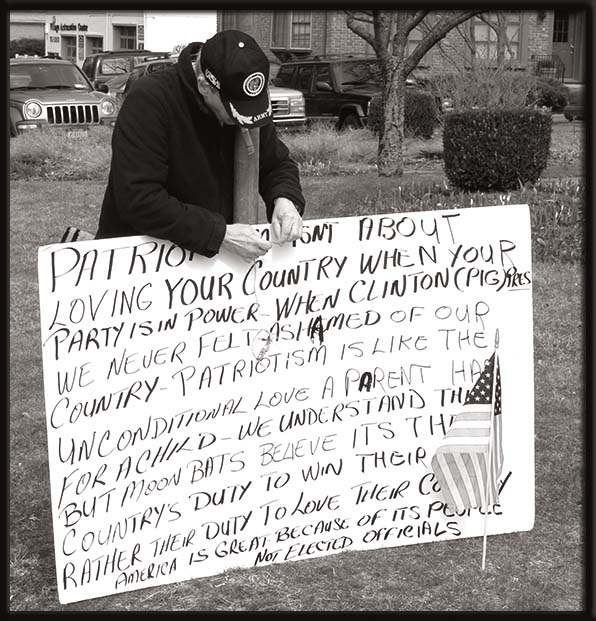 Automotive Center
ARMY
PATRIO ISNT ABOUT
LOVING YOUR COUNTRY WHEN YOUR
PARTY IS IN POWER - WHEN CLINTON (PIG) PRES
WE NEVER FELT ASHAMED OF OUR
COUNTRY - PATRIOTISM IS LIKE THE
UNCONDITIONAL LOVE A PARENT HA
FOR A CHILD - WE UNDERSTAND TH
BUT MOON BATS BELIEVE ITS TH
COUNTRY'S DUTY TO WIN THEIR
RATHER THEIR DUTY TO LOVE THEIR CO Y
AMERICA IS GREAT BECAUSE OF ITS PEOPLE
NOT ELECTED OFFICIALS